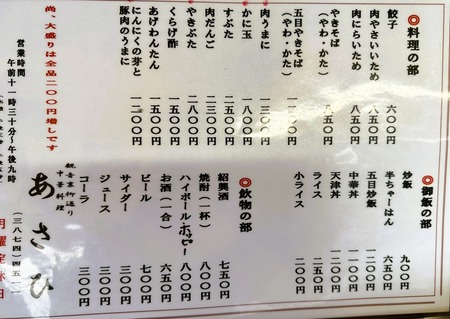 ◎料理の部
餃子 六〇〇円
肉やさいいため 八五〇円
肉にらいため 八五〇円
やきそば
(やわ・かた) 八五〇円
五目やきそば
(やわ・かた) 一一〇〇円
肉うまに 一三〇〇円
かに玉 一八〇〇円
すぶた 二五〇〇円
肉だんご
やきぶた
くらげ酢 一五〇〇円
あげわんたん 一五〇〇円
にんにくの芽と
豚肉のうまに 一二〇〇円
尚、大盛りは全品二〇〇円増しです
営業時間
午前十一時三十分〜午後九時
◎御飯の部
炒飯 九〇〇円
半ちゃーはん 六五〇円
五目炒飯
中華丼
天津丼
ライス 二五〇円
小ライス 二〇〇円
◎飲物の部
紹興酒 七五〇円
焼酎(一杯) 八〇〇円
ハイボール ホッピー 八〇〇円
お酒(一合) 六五〇円
ビール 七〇〇円
サイダー 三〇〇円
ジュース 三〇〇円
コーラ 三〇〇円
観音裏柳通り
中華料理
あさひ
月曜定休日